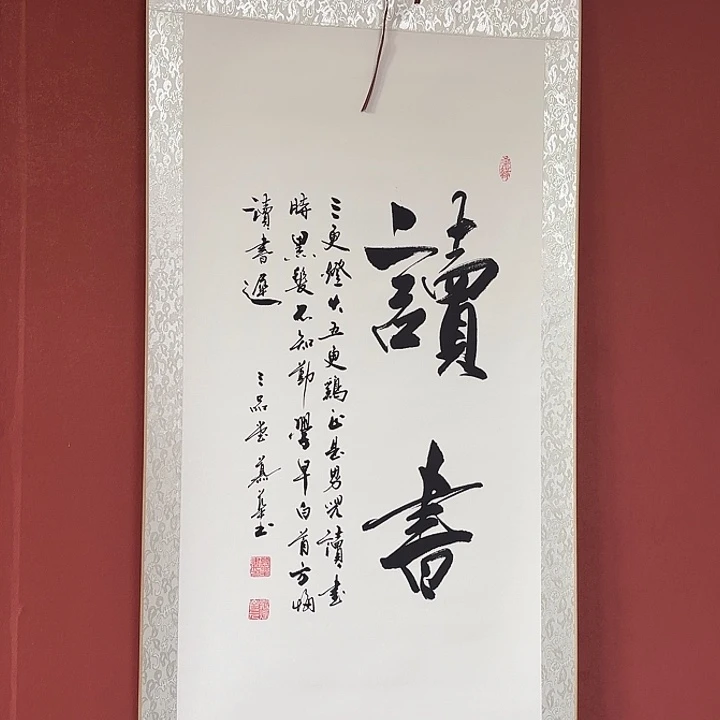 讀書
三更燈火五更鷄正是男兒讀書
時黑髮不知勤學早白首方悔
讀書遲
三品堂慕華书